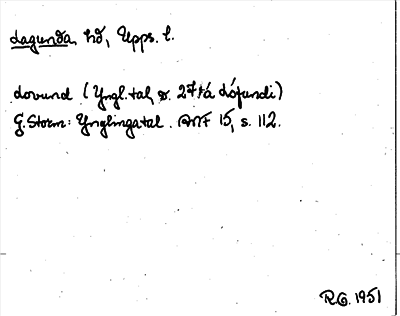 Lagunda, hd, Upps. l.
Lovund (Yngl.tal, s. 27 tá Lófundi)
G. Storm: Ynglingatal. ANF 15, s. 112.
R.G. 1951